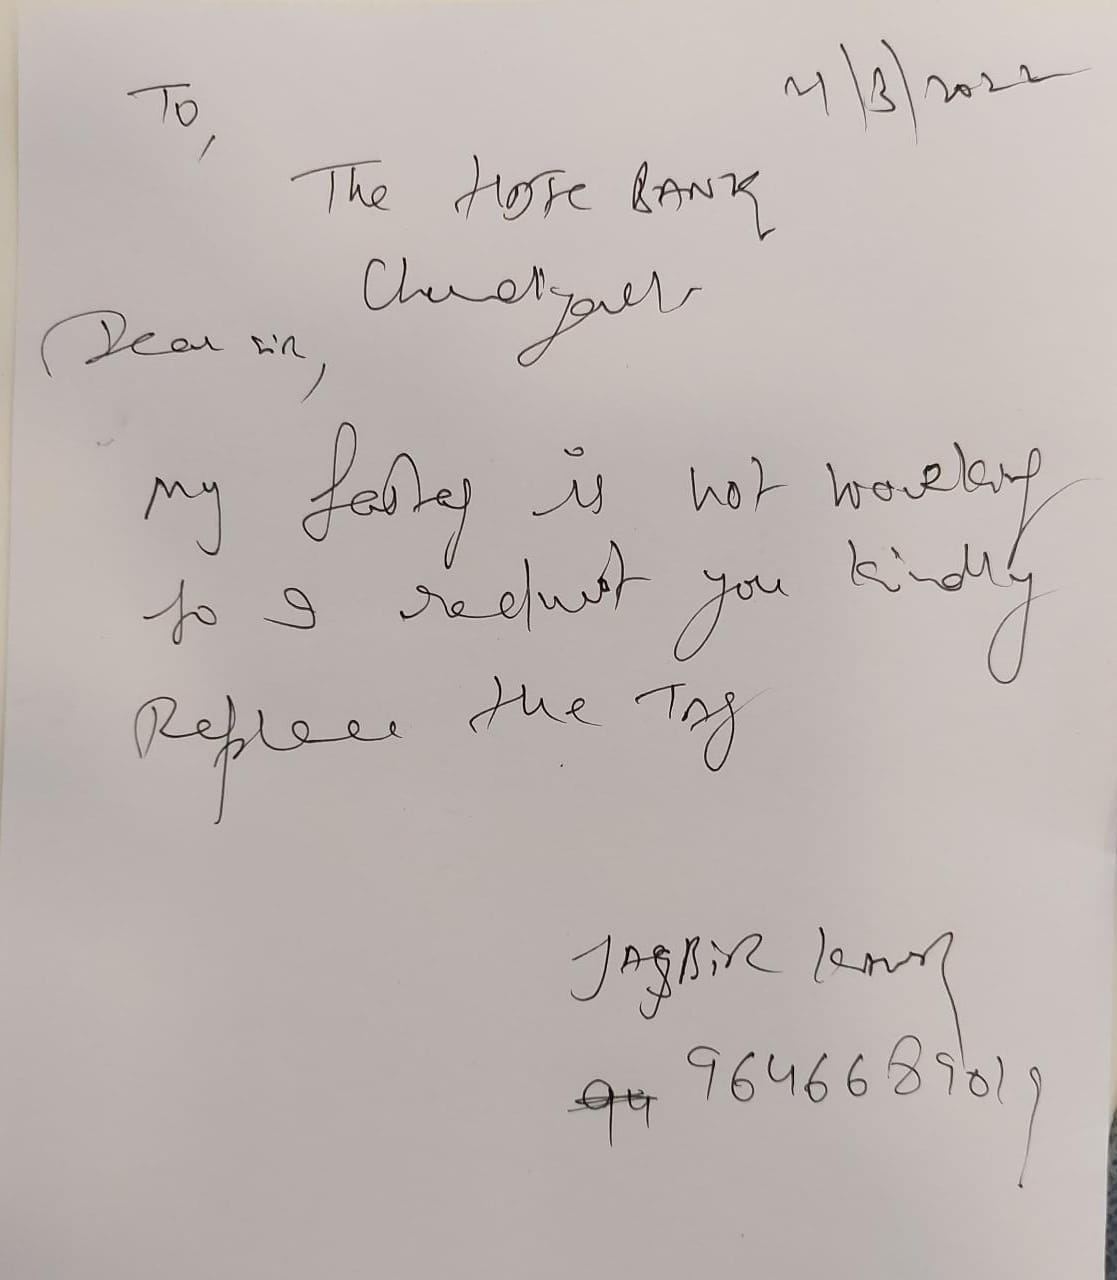 To,
The HDFC BANK
Chandigarh
Dear sir,
My fastag is not working
so I request you kindly
Replace the TAg
JAgBiR kaur
9646689019